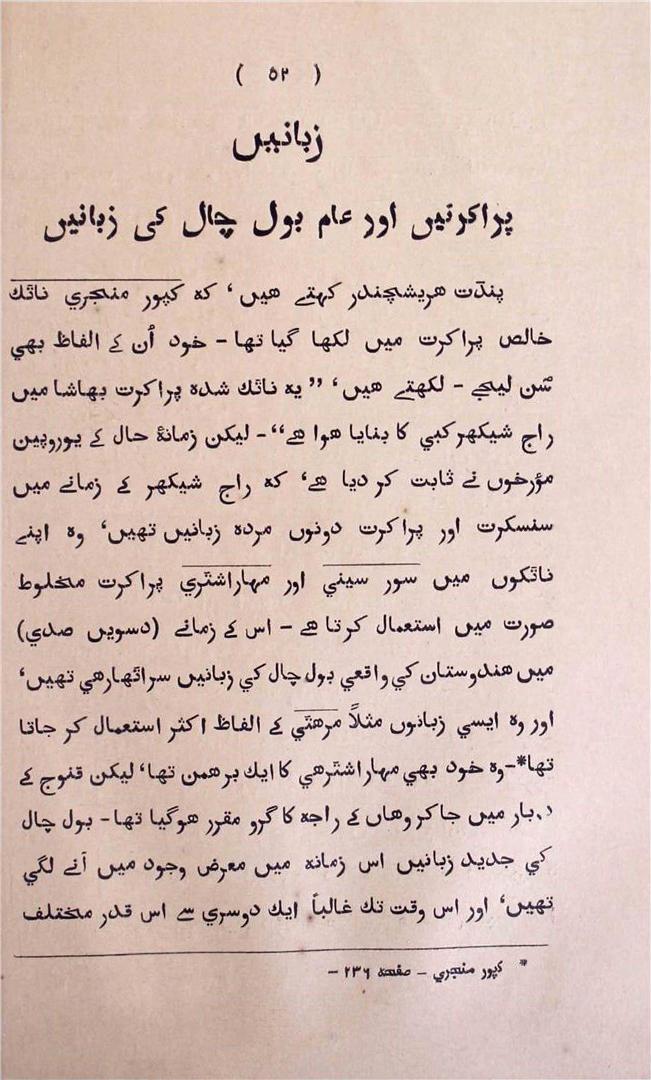 ( ۵۲ )
زبانیں
پراکرتیں اور عام بول چال کی زبانیں
پنڈت ہریشچندر کہتے ہیں، کہ کپور منجری ناٹک
خالص پراکرت میں لکھا گیا تھا - خود اُن کے الفاظ بھی
سُن لیجے - لکھتے ہیں، ”یہ ناٹک شدہ پراکرت بھاشا میں
راج شیکھر کبی کا بنایا ہوا ہے“ - لیکن زمانۂ حال کے یوروپین
مؤرخوں نے ثابت کر دیا ہے، کہ راج شیکھر کے زمانے میں
سنسکرت اور پراکرت دونوں مردہ زبانیں تھیں، وہ اپنے
ناٹکوں میں سور سینی اور مہاراشٹری پراکرت مخلوط
صورت میں استعمال کرتا ہے - اس کے زمانے (دسویں صدی)
میں ہندوستان کی واقعی بول چال کی زبانیں سر اٹھا رہی تھیں،
اور وہ ایسی زبانوں مثلاً مرہٹی کے الفاظ اکثر استعمال کر جاتا
تھا* - وہ خود بھی مہاراشٹرھی کا ایک برہمن تھا، لیکن قنوج کے
دربار میں جاکر وہاں کے راجہ کا گرو مقرر ہوگیا تھا - بول چال
کی جدید زبانیں اس زمانہ میں معرض وجود میں آنے لگی
تھیں، اور اس وقت تک غالباً ایک دوسری سے اس قدر مختلف
* کپور منجری - صفحہ ۲۳۶ -